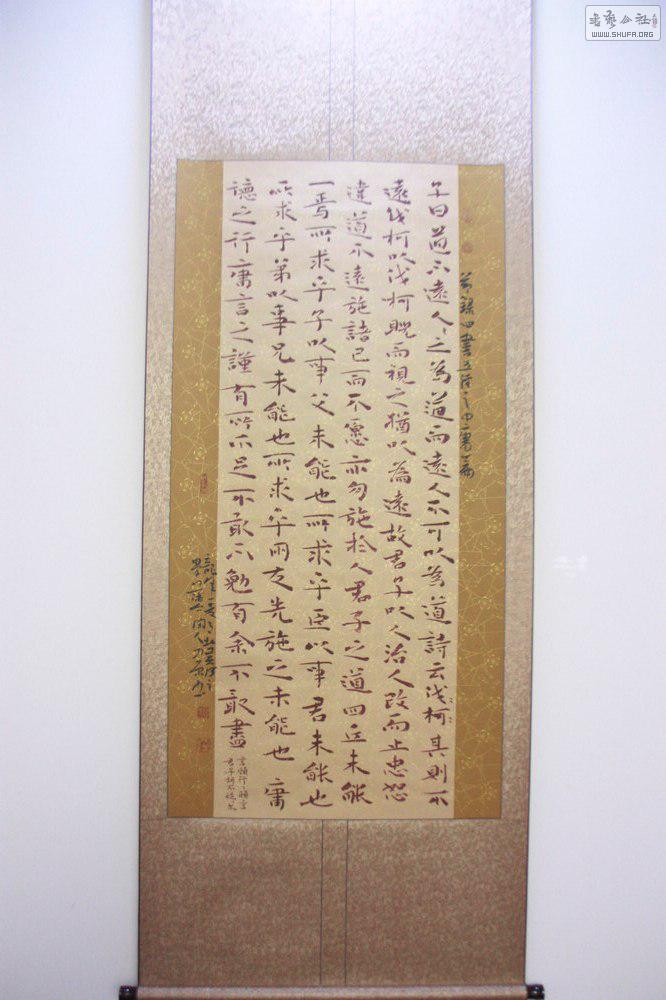 節錄四書五經之中庸篇
子曰道不遠人人之為道而遠人不可以為道詩云伐柯伐柯其則不
遠伐柯以伐柯睨而視之猶以為遠故君子以人治人改而止忠恕
違道不遠施諸己而不愿亦勿施於人君子之道四丘未能
一焉所求乎子以事父未能也所求乎臣以事君未能也
所求乎弟以事兄未能也所求乎朋友先施之未能也庸
德之行庸言之謹有所不足不敢不勉有余不敢盡
言顧行行顧言
君子胡不慥
書藝公社
WWW.SHUFA.ORG